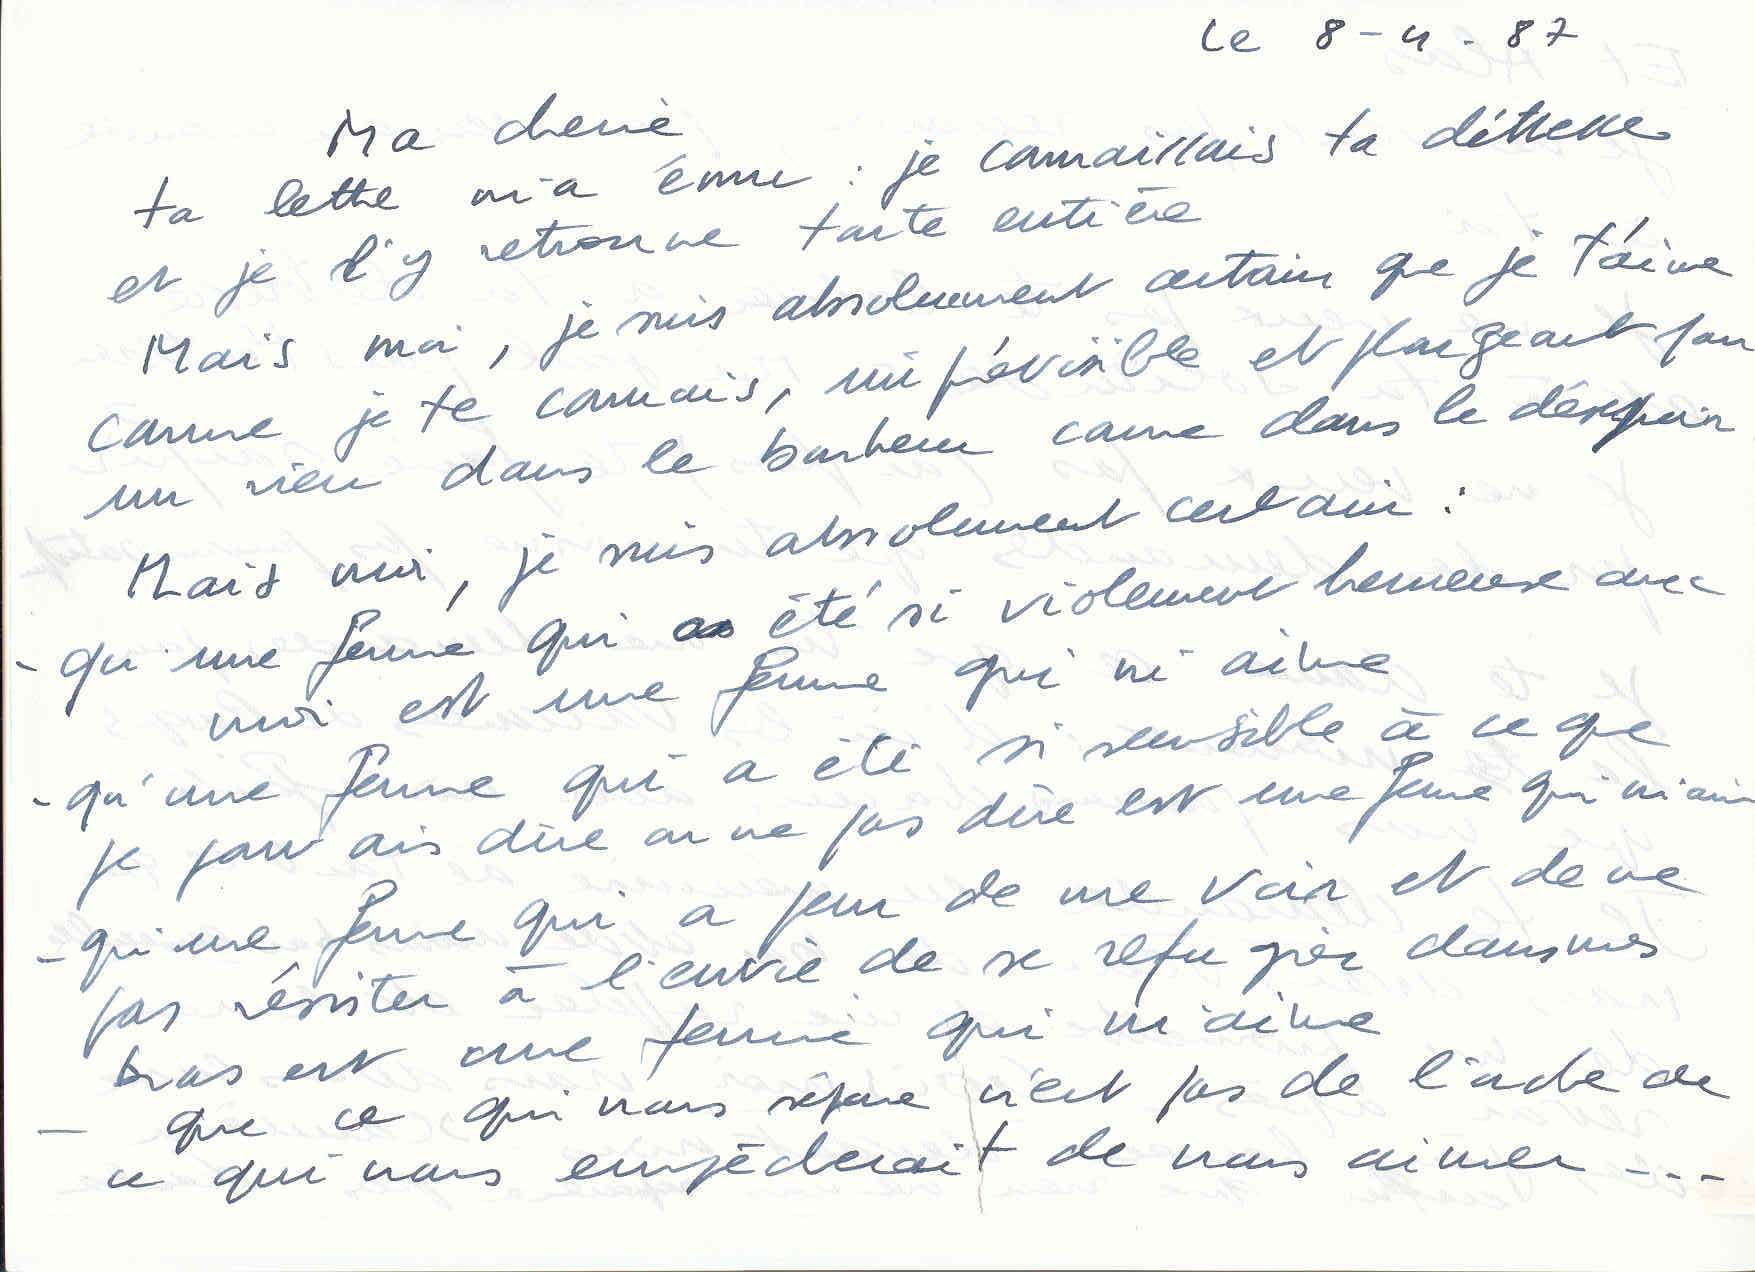 Le 8-4-87
Ma cherie
ta lettre m'a émue : je connaissais ta détresse
et je l'y retrouve toute entière
Mais moi, je suis absolument certain que je t'aime
comme je te connais, imprévisible et plongeant pour
un rien dans le bonheur comme dans le désespoir
Mais moi, je suis absolument certain :
- qu'une femme qui a été si violement heureuse avec
moi est une femme qui m'aime
- qu'une femme qui a été si sensible à ce que
je pouvais dire ou ne pas dire est une femme qui m'aime
- qu'une femme qui a peur de me voir et de ne
pas résister à l'envie de se refugier dans mes
bras est une femme qui m'aime
- que ce qui nous sépare n'est pas de l'ordre de
ce qui nous empêcherait de nous aimer ---